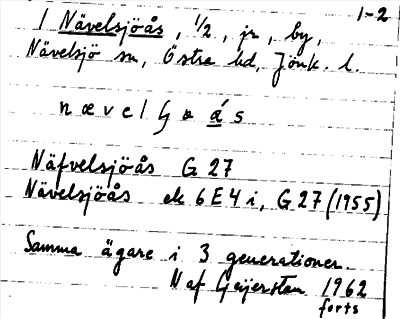 1-2
1 Nävelsjöås, 1/2, jr, by,
Nävelsjö sn, Östra hd, Jönk. l.
Näfvelsjöås G 27
Nävelsjöås ek 6E4i, G27 (1955)
Samma ägare i 3 generationer.
N af Geijerstam 1962
forts